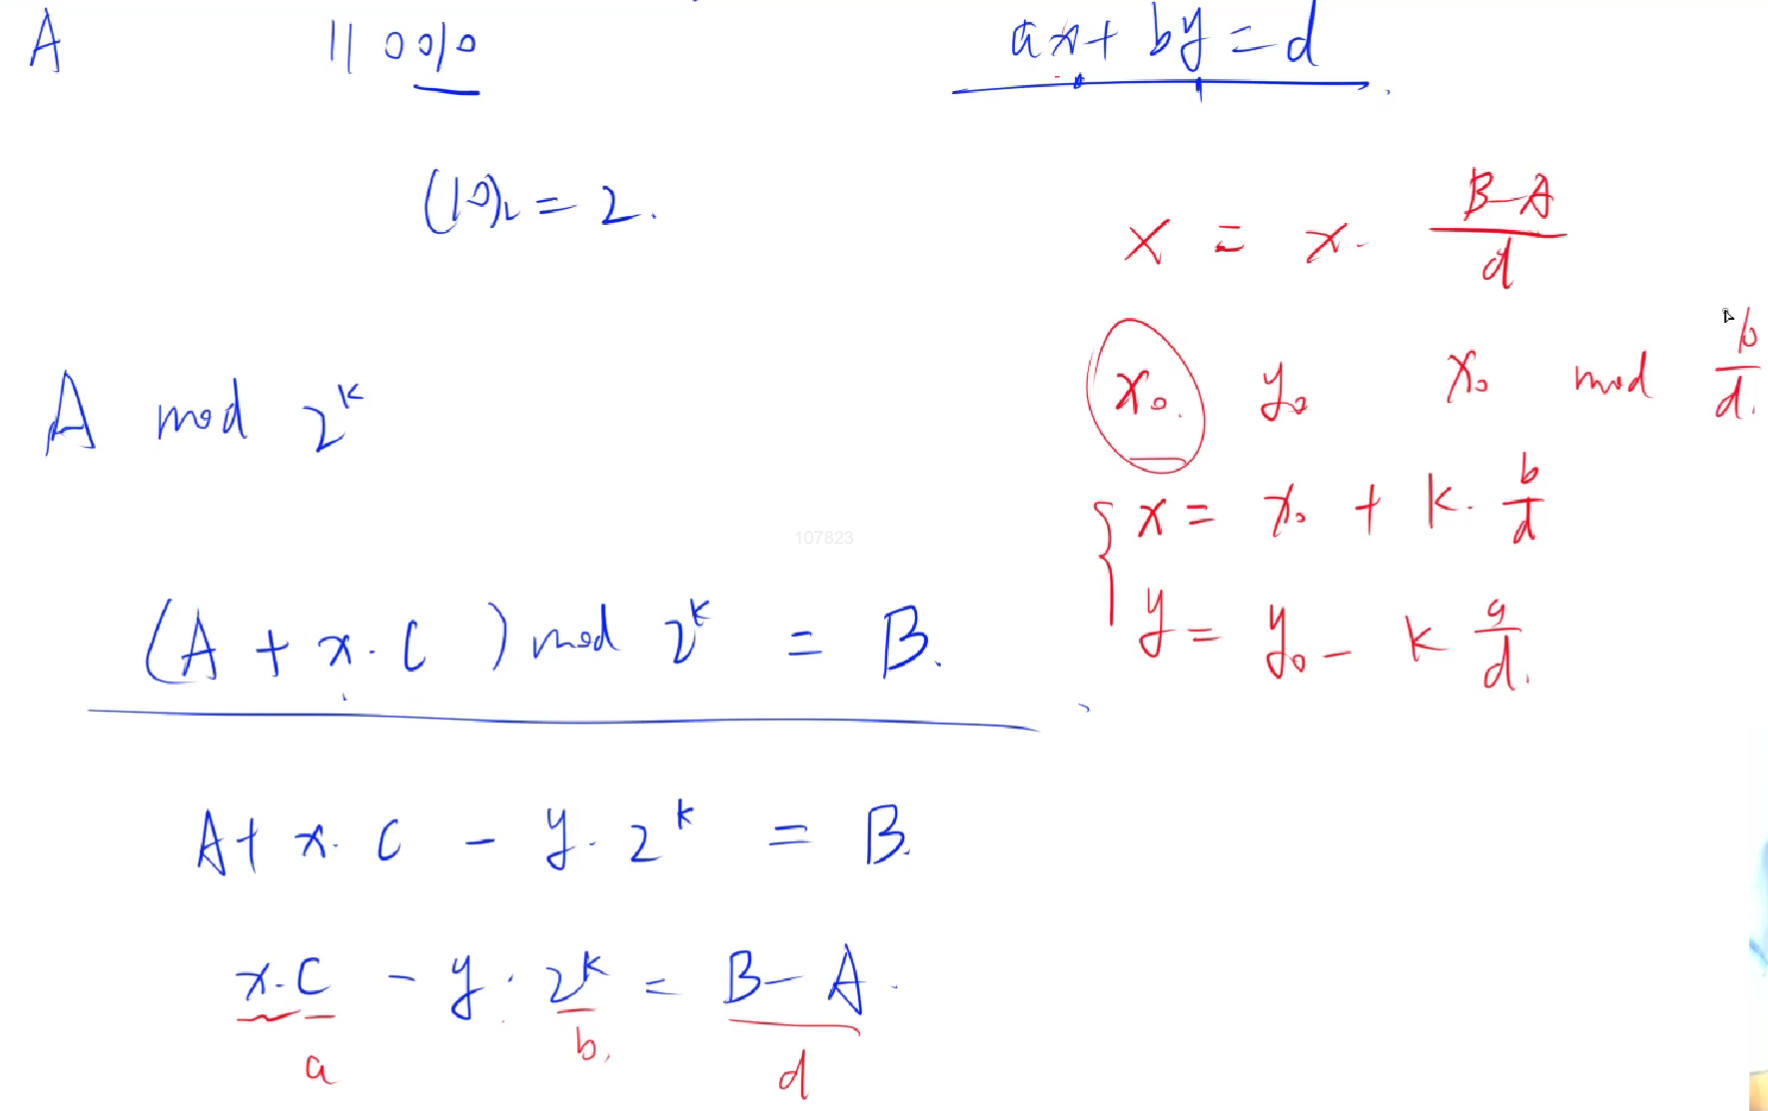 A 110010
(10)₂ = 2.
A mod 2^k
(A + x·C) mod 2^k = B.
A + x·C - y·2^k = B.
x·C - y·2^k = B - A.
a b, d
ax + by = d
x = x· (B-A)/d
x₀. y₀ x₀ mod b/d.
x = x₀ + k· b/d
y = y₀ - k a/d.
107823